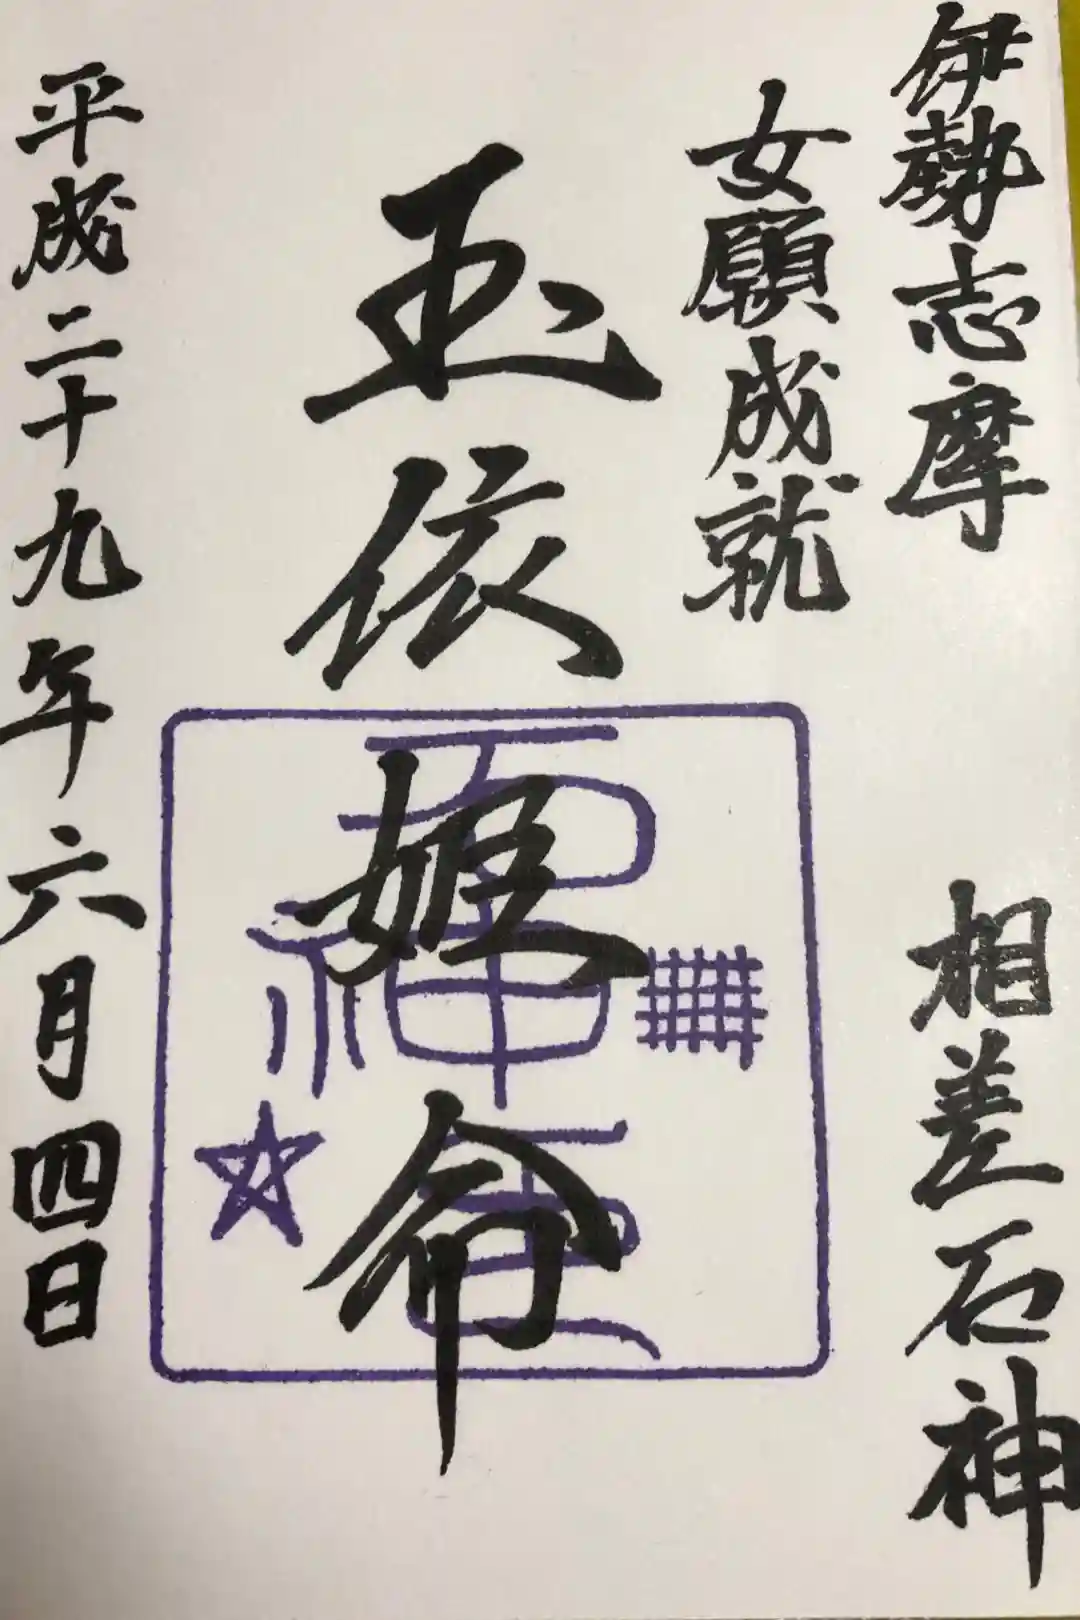 伊勢志摩　相差石神
女願成就
玉依姫命
平成二十九年六月四日